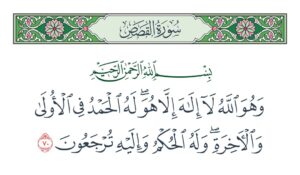 سُورَةُ القَصَصِ
بِسْمِ اللَّهِ الرَّحْمَٰنِ الرَّحِيمِ
وَهُوَ اللَّهُ لَآ إِلَٰهَ إِلَّا هُوَ ۖ لَهُ الْحَمْدُ فِى الْأُولَىٰ
وَالْآخِرَةِ ۖ وَلَهُ الْحُكْمُ وَإِلَيْهِ تُرْجَعُونَ ٧٠